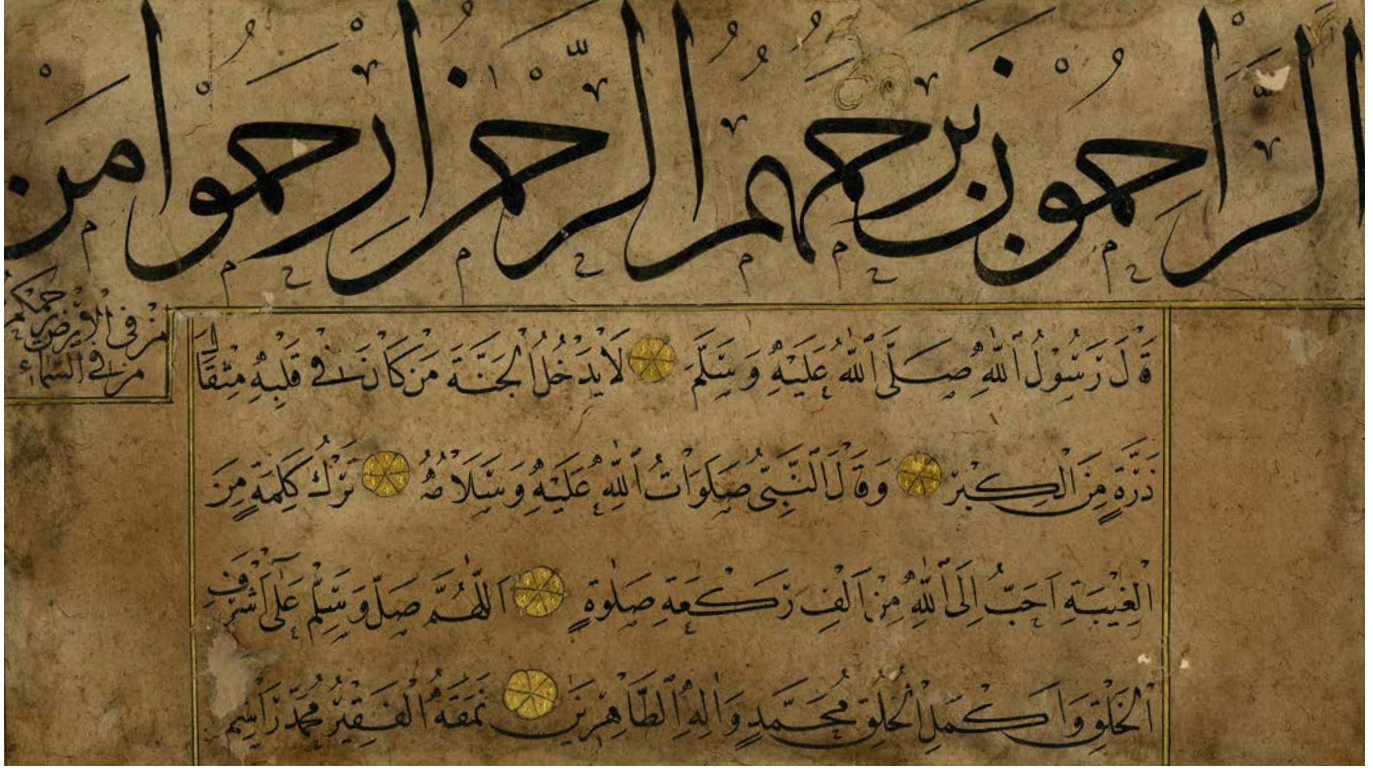 الرَّاحِمُونَ يَرْحَمُهُمُ الرَّحْمٰنُ اِرْحَمُوا مَنْ
مَنْ فِى الْاَرْضِ يَرْحَمْكُمْ
مَنْ فِى السَّمَاءِ
قَالَ رَسُولُ ٱللّٰهِ صَلَّى ٱللّٰهُ عَلَيْهِ وَسَلَّمَ لَا يَدْخُلُ الْجَنَّةَ مَنْ كَانَ فِى قَلْبِهِ مِثْقَالُ
ذَرَّةٍ مِنَ الْكِبْرِ وَقَالَ النَّبِىُّ صَلَوَاتُ ٱللّٰهِ عَلَيْهِ وَسَلَامُهُ تَرْكُ كَلِمَةٍ مِنَ
الْغِيْبَةِ اَحَبُّ اِلَى ٱللّٰهِ مِنْ اَلْفِ رَكْعَةِ صَلٰوةٍ اَللّٰهُمَّ صَلِّ وَسَلِّمْ عَلٰى اَشْرَفِ
الْخَلْقِ وَاَكْمَلِ الْخُلْقِ مُحَمَّدٍ وَاٰلِهِ ٱلطَّاهِرِيْنَ نَمَقَهُ الْفَقِيْرُ مُحَمَّد رَاسِم